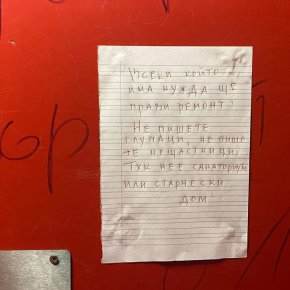 Всеки който
има нужда ще
прави ремонт!
Не пишете
глупаци, не пише
те нещастници
Тук нее санаториум
или старчески
дом!